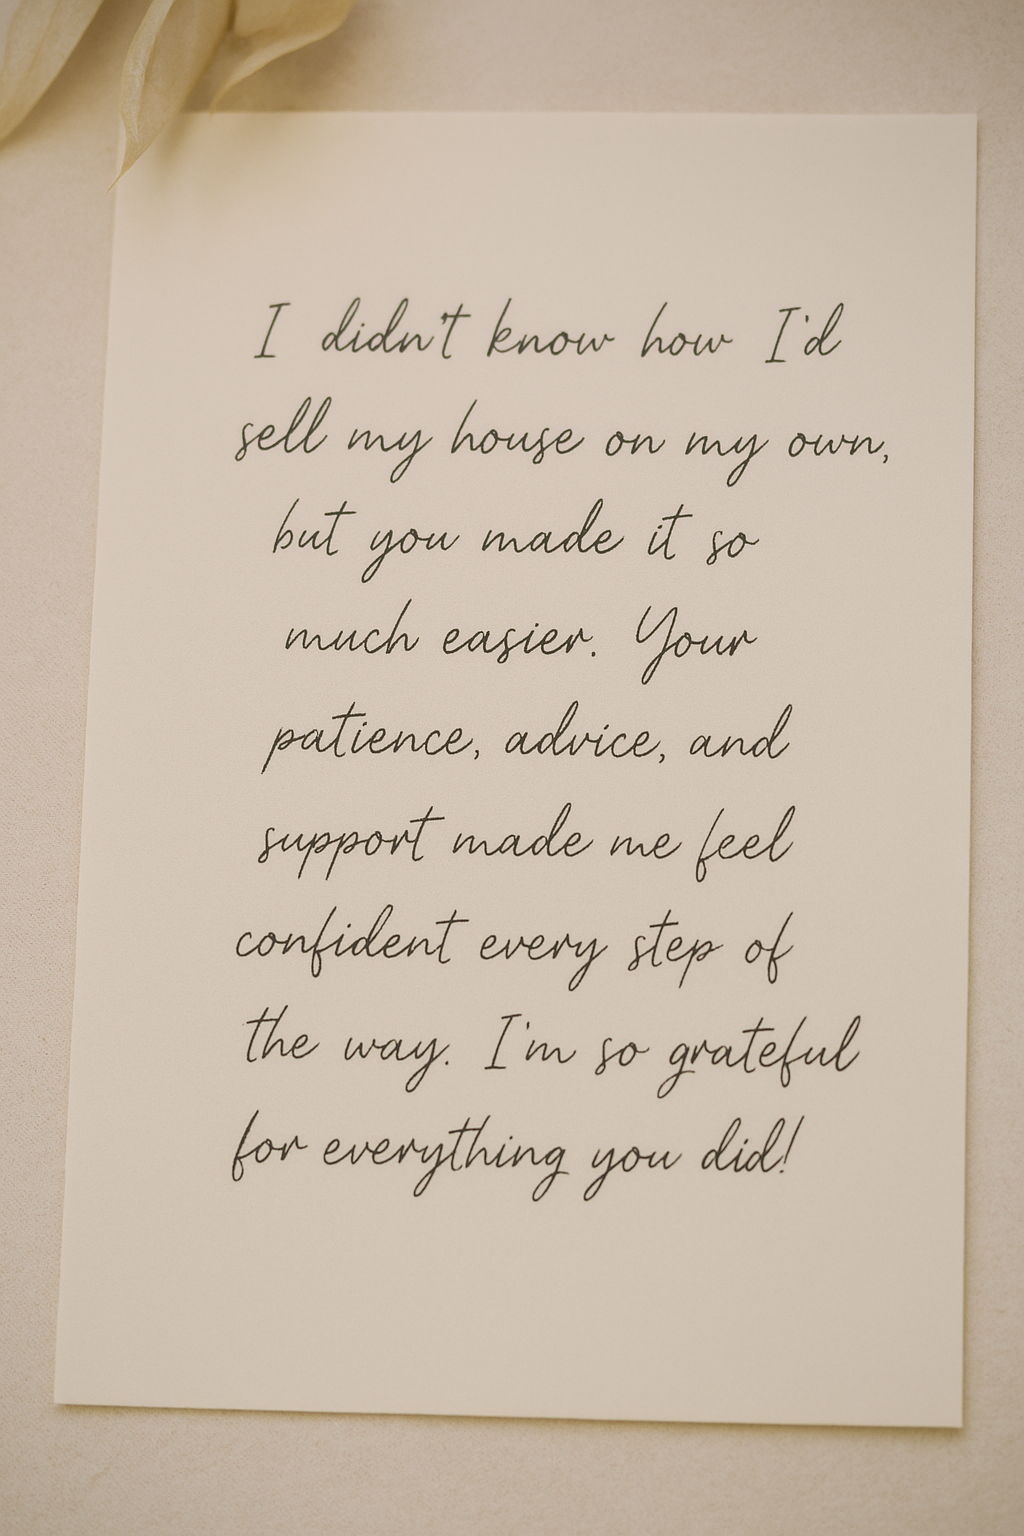 I didn't know how I'd
sell my house on my own,
but you made it so
much easier. Your
patience, advice, and
support made me feel
confident every step of
the way. I'm so grateful
for everything you did!